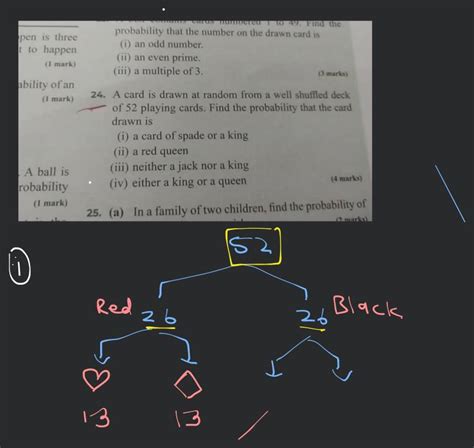 cards numbered 1 to 49. Find the
probability that the number on the drawn card is
(i) an odd number.
(ii) an even prime.
(iii) a multiple of 3.
(3 marks)
pen is three
t to happen
(1 mark)
ability of an
(1 mark)
24. A card is drawn at random from a well shuffled deck
of 52 playing cards. Find the probability that the card
drawn is
(i) a card of spade or a king
(ii) a red queen
(iii) neither a jack nor a king
(iv) either a king or a queen
(4 marks)
. A ball is
robability
(1 mark)
25. (a) In a family of two children, find the probability of
(2 marks)
i
52
Red 26
26 Black
13 13